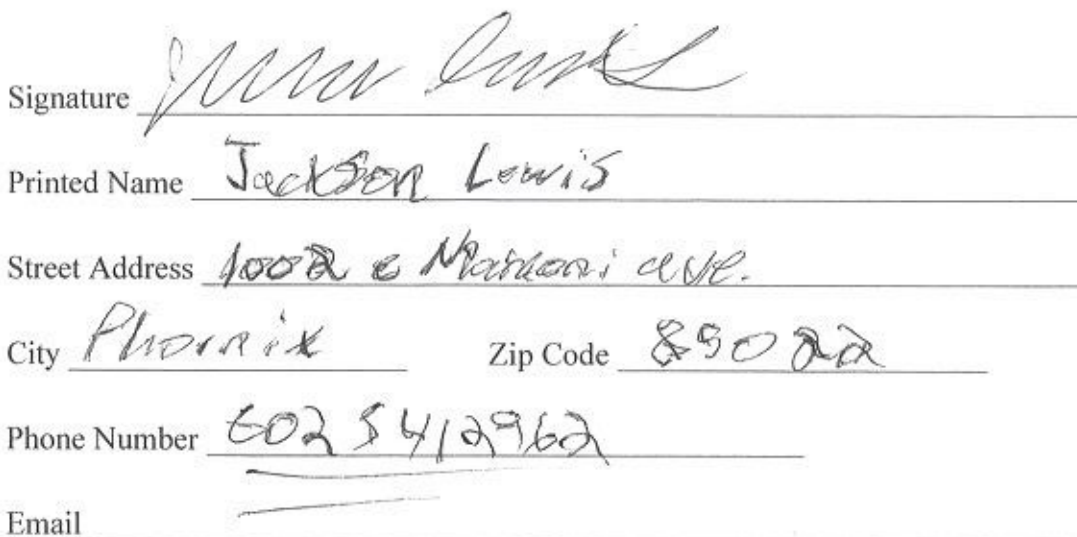 Signature
Printed Name Jackson Lewis
Street Address 1002 e Marconi ave.
City Phoenix Zip Code 85022
Phone Number 602 5412962
Email